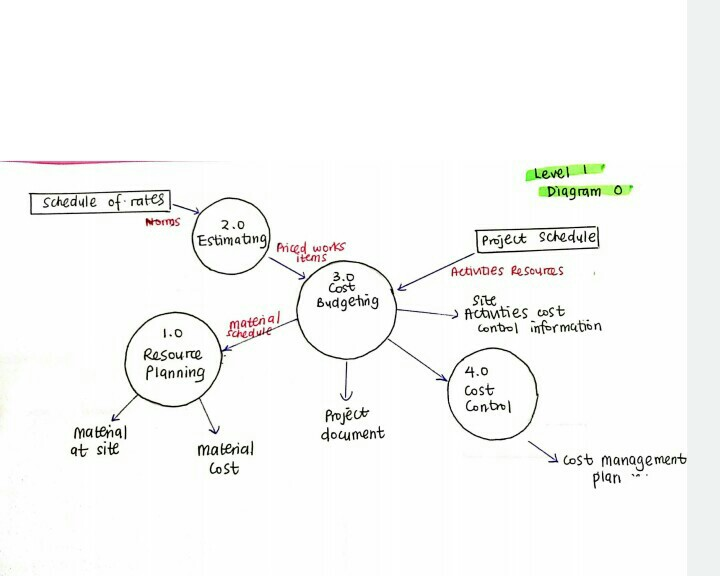 Level 1
Diagram 0
Schedule of rates
Norms
2.0
Estimating
Priced works
items
Project Schedule
Activities Resources
3.0
Cost
Budgeting
Site
Activities cost
control information
Material
schedule
1.0
Resource
Planning
4.0
Cost
Control
Project
document
Material
at site
Material
Cost
Cost management
plan